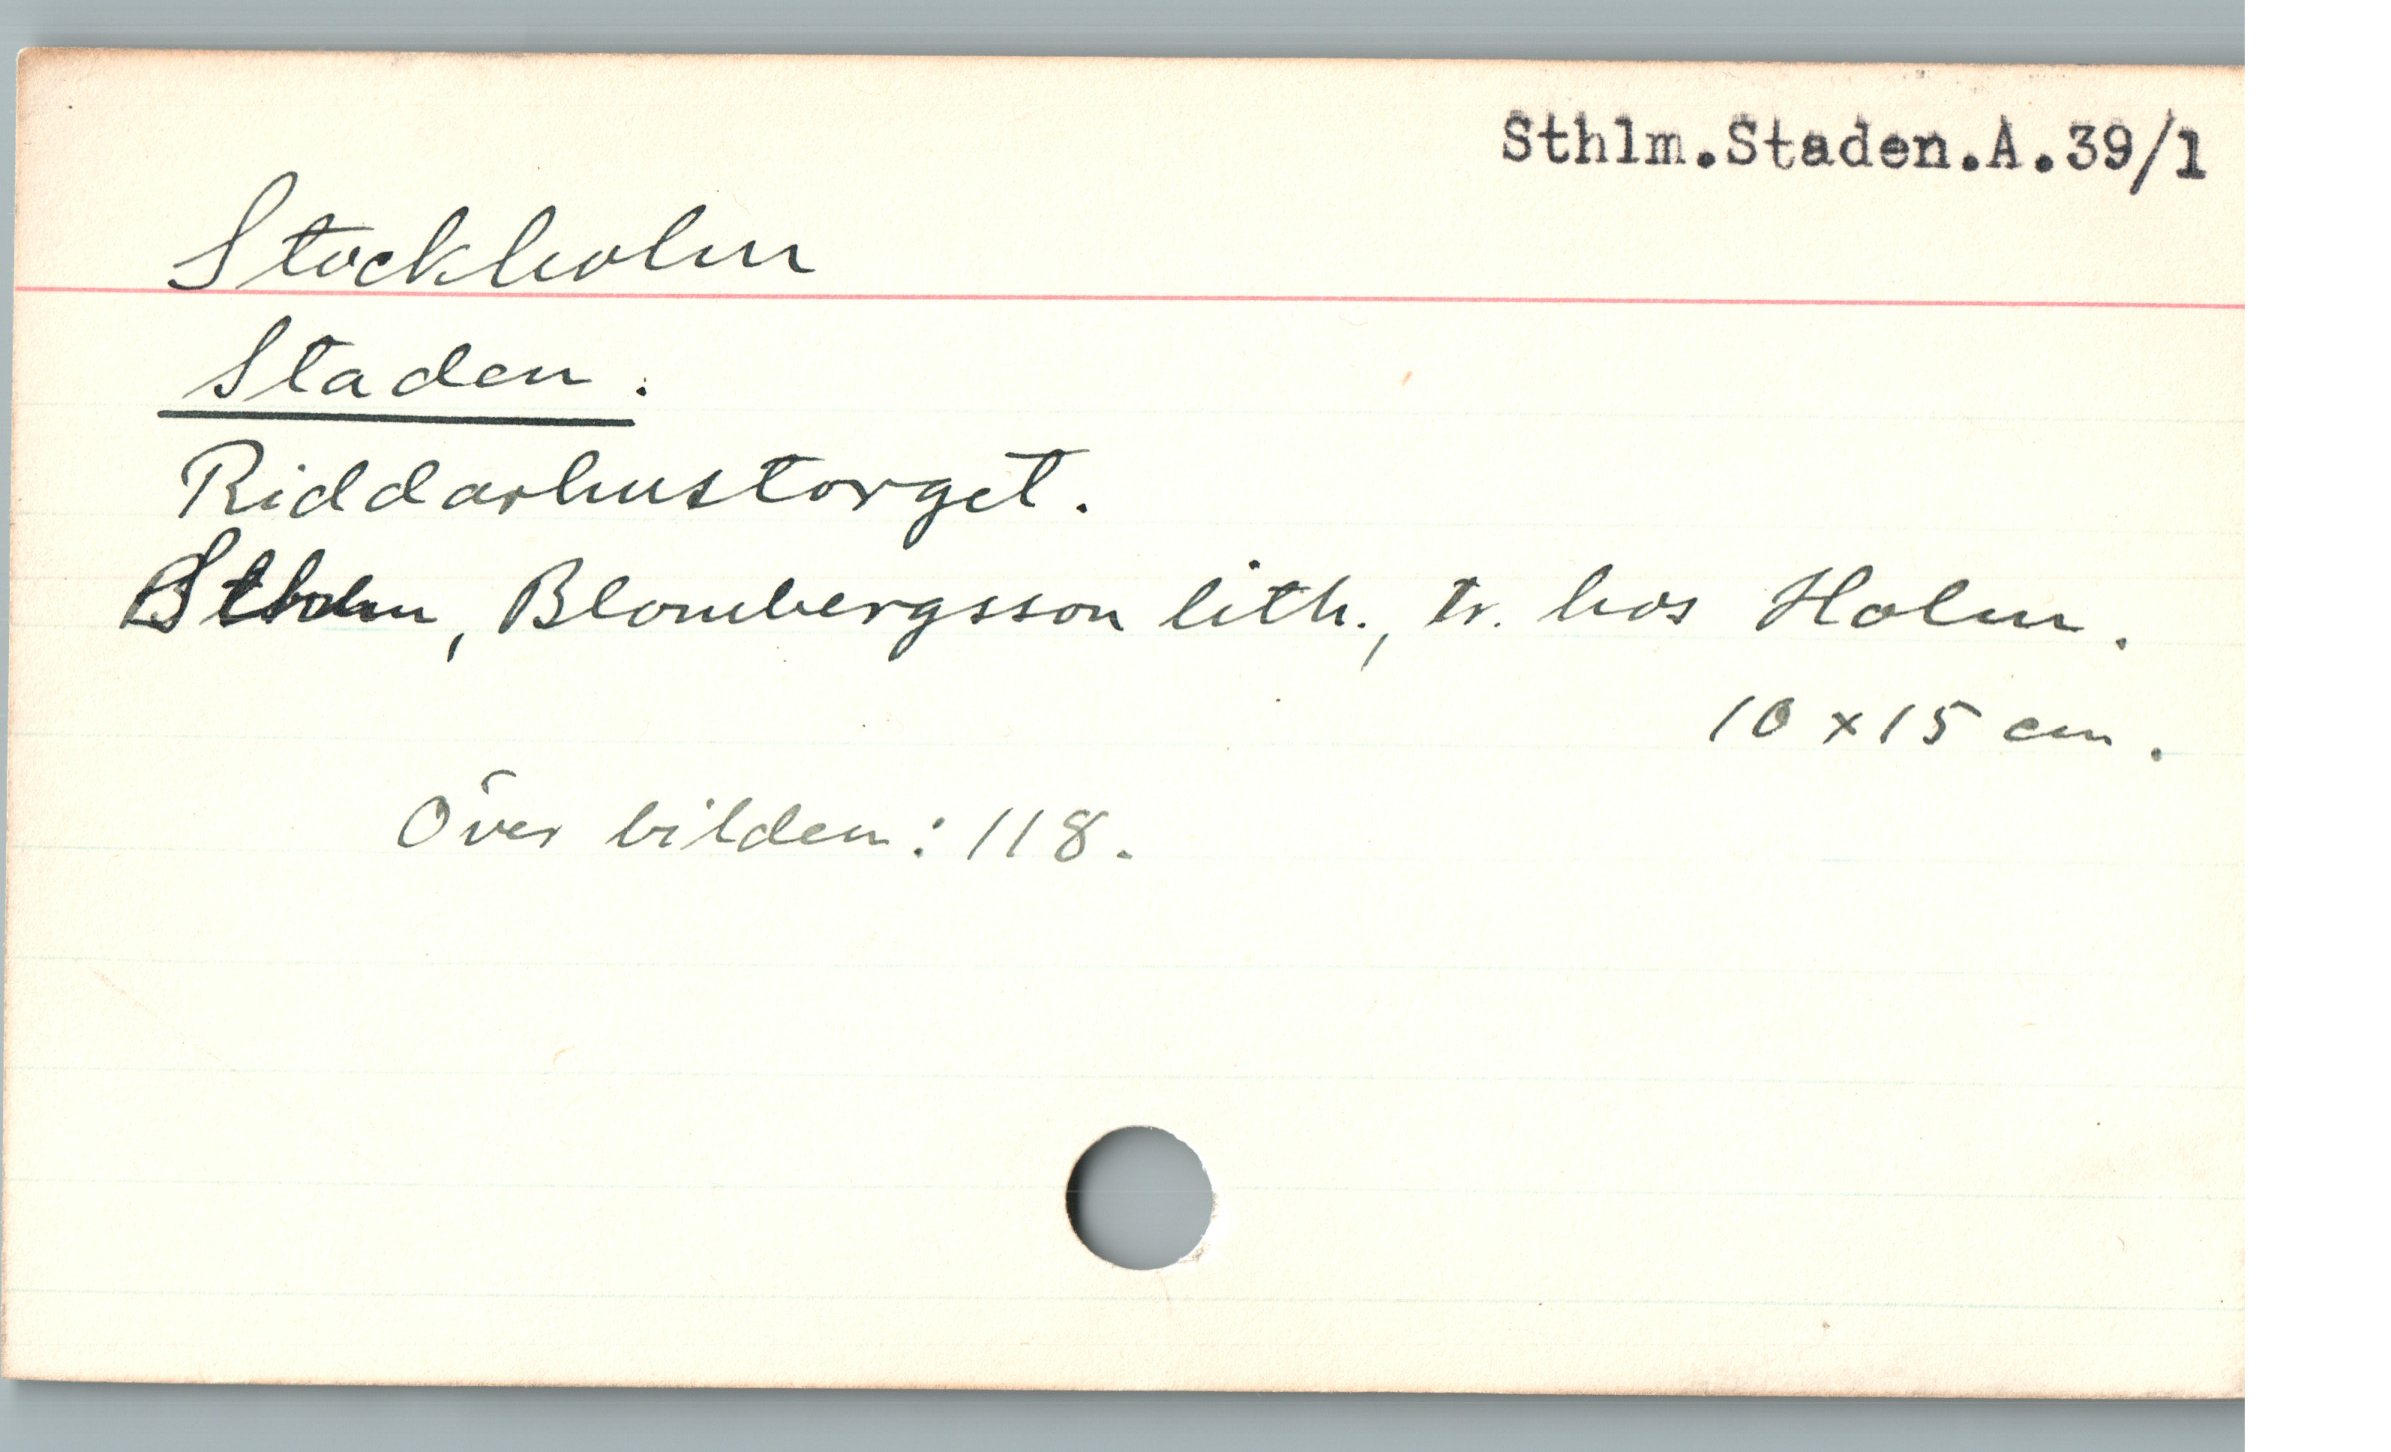 Sthlm.Staden.A.39/1
Stockholm
Staden.
Riddarhustorget.
Sthlm, Blombergsson lith., tr. hos Holm.
10 x 15 cm.
Över bilden: 118.